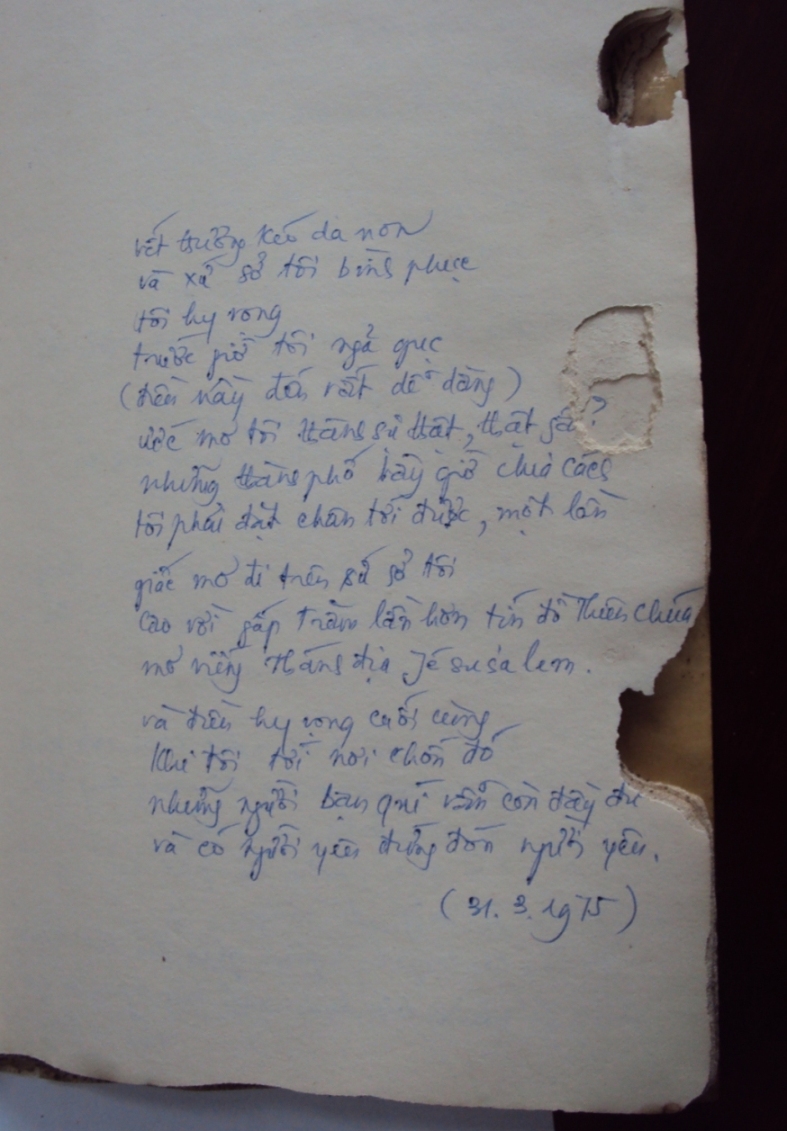 vết thương kéo da non
và xứ sở tôi bình phục
tôi hy vọng
trước giờ tôi ngã gục
(điều này đến rất dễ dàng)
ước mơ tôi thành sự thật, thật sao?
những thành phố bây giờ chia cách
tôi phải đặt chân tới được, một lần
giấc mơ đi trên xứ sở tôi
cao vời gấp trăm lần hơn tín đồ Thiên chúa
mơ viếng thánh địa Jésusalem.
và điều hy vọng cuối cùng
khi tôi tới nơi chốn đó
những người bạn quí vẫn còn đầy đủ
và có người yêu đứng đón người yêu.
(31.3.1975)